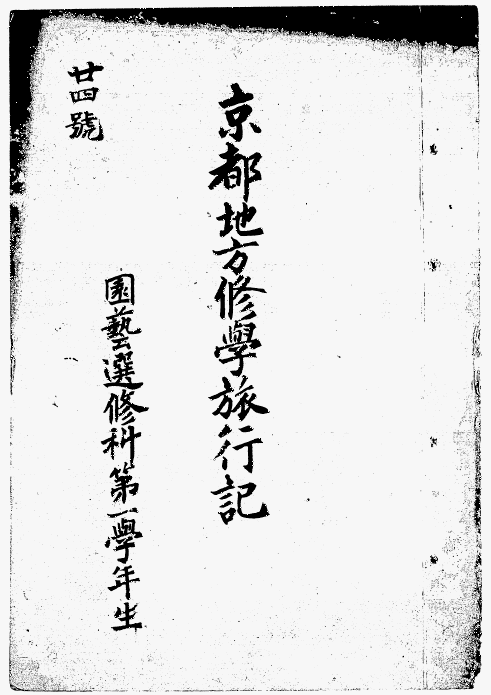 京都地方修學旅行記
園藝選修科第一學年生
廿四號